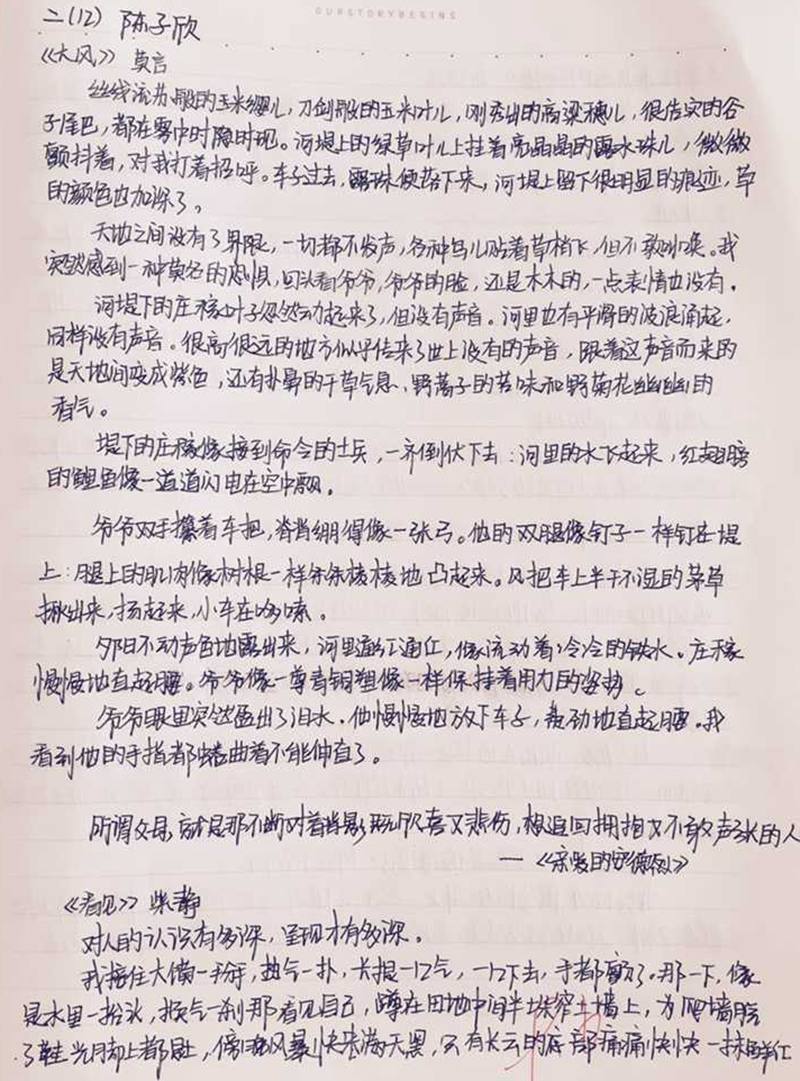 OURSTORYBEGINS
二(12) 陈子欣
《大风》 莫言
丝线流苏般的玉米缨儿，刀剑般的玉米叶儿，刚秀出的高粱穗儿，很结实的谷
子尾巴，都在雾中时隐时现。河堤上的绿草叶儿上挂着亮晶晶的露水珠儿，微微
颤抖着，对我打着招呼。车子过去，露珠便落下来，河堤上留下很明显的痕迹，草
的颜色也加深了。
天地之间没有了界限，一切都不发声，各种鸟儿贴着草梢飞，但不敢叫唤。我
突然感到一种莫名的恐惧，回头看爷爷，爷爷的脸，还是木木的，一点表情也没有。
河堤下的庄稼叶子忽然动起来了，但没有声音。河里也有平滑的波浪涌起，
同样没有声音。很高很远的地方似乎传来了世上没有的声音，跟着这声音而来的
是天地间变成紫色，还有扑鼻的干草气息、野蒿子的苦味和野菊花幽幽的
香气。
堤下的庄稼像接到命令的士兵，一齐倒伏下去；河里的水飞起来，红翅膀
的鲤鱼像一道道闪电在空中飘。
爷爷双手攥着车把，脊背绷得像一张弓。他的双腿像钉子一样钉在堤
上；腿上的肌肉像树根一样条条棱棱地凸起来。风把车上半干不湿的茅草
揪出来，扬起来，小车在哆嗦。
夕阳不动声色地露出来，河里通红通红，像流动着冷冷的铁水。庄稼
慢慢地直起腰。爷爷像一尊青铜塑像一样保持着用力的姿势。
爷爷眼里突然盈出了泪水。他慢慢地放下车子，费劲地直起腰。我
看到他的手指都蜷曲着不能伸直了。
所谓父母，就是那不断对着背影既欣喜又悲伤，想追回拥抱又不敢声张的人
—《亲爱的安德烈》
《看见》 柴静
对人的认识有多深，呈现才有多深。
我接住大镐一抡，热气一扑，长提一口气，一口下去，手都颤了。那一下，像
是水里一抬头，换气一刹那看见自己，蹲在田地中间半垛窄土墙上，为爬墙脱
了鞋 光脚上都是土，傍晚风暴快来满天黑，只有长云的底部痛痛快快一抹鲜红